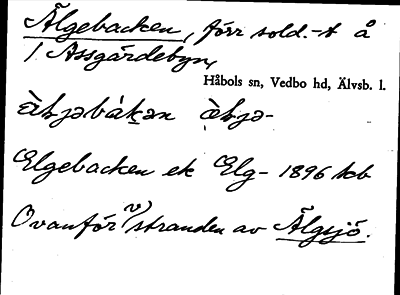 Älgebacken, förr sold.-t å
1 Assgärdebyn,
Håbols sn, Vedbo hd, Älvsb. l.
Elgebacken ek Elg- 1896 kb
Ovanför v) stranden av Älgsjö.